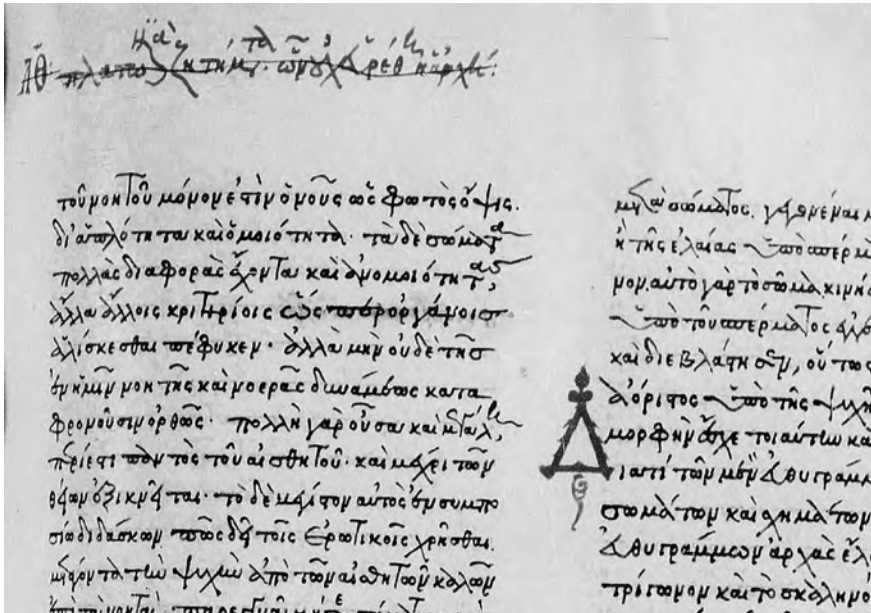 πλατωνικὰ ζητήματα· ὧν οὐχ εὑρέθη ἡ ἀρχή:
τοῦ νοητοῦ μόνον ἐστὶν ὁ νοῦς ὡς φωτὸς ὄψις.
δι' ἁπλότητα καὶ ὁμοιότητα· τὰ δὲ σώματα
πολλὰς διαφορὰς ἔχοντα καὶ ἀνομοιότητας,
ἄλλα ἄλλοις κριτηρίοις ὥσπερ ὀργάνοις
ἁλίσκεσθαι πέφυκεν· ἀλλὰ μὴν οὐδὲ τῆς
ἐν ἡμῖν νοητῆς καὶ νοερᾶς δυνάμεως κατα
φρονοῦσιν ὀρθῶς· πολλὴ γὰρ οὖσα καὶ μεγάλη,
περίεστι παντὸς τοῦ αἰσθητοῦ· καὶ μέχρι τῶν
θείων ἐξικνεῖται· τὸ δὲ μέγιστον αὐτὸς ἐν συμπο
σίω διδάσκων πῶς δεῖ τοῖς ἐρωτικοῖς χρῆσθαι.
μετάγοντα τὴν ψυχὴν ἀπὸ τῶν αἰσθητῶν καλῶν
ἐπὶ τὰ νοητὰ
σώματος. γεγονέναι
ἢ τῆς ἐλαίας ὑπὸ σπέρμα
μον. αὐτὸ γὰρ τὸ σῶμα κινήσ
ὑπὸ τοῦ σπέρματος
καὶ διεβλάστησεν, οὕτως
ἀόριστος ὑπὸ τῆς ψυχῆ
μορφὴν ἔσχε τοιαύτην κα
Διατί τῶν μὲν εὐθυγράμμ
σωμάτων καὶ σχημάτων
εὐθυγράμμων ἀρχὰς ἔλ
τρίγωνον καὶ τὸ σκαληνὸ